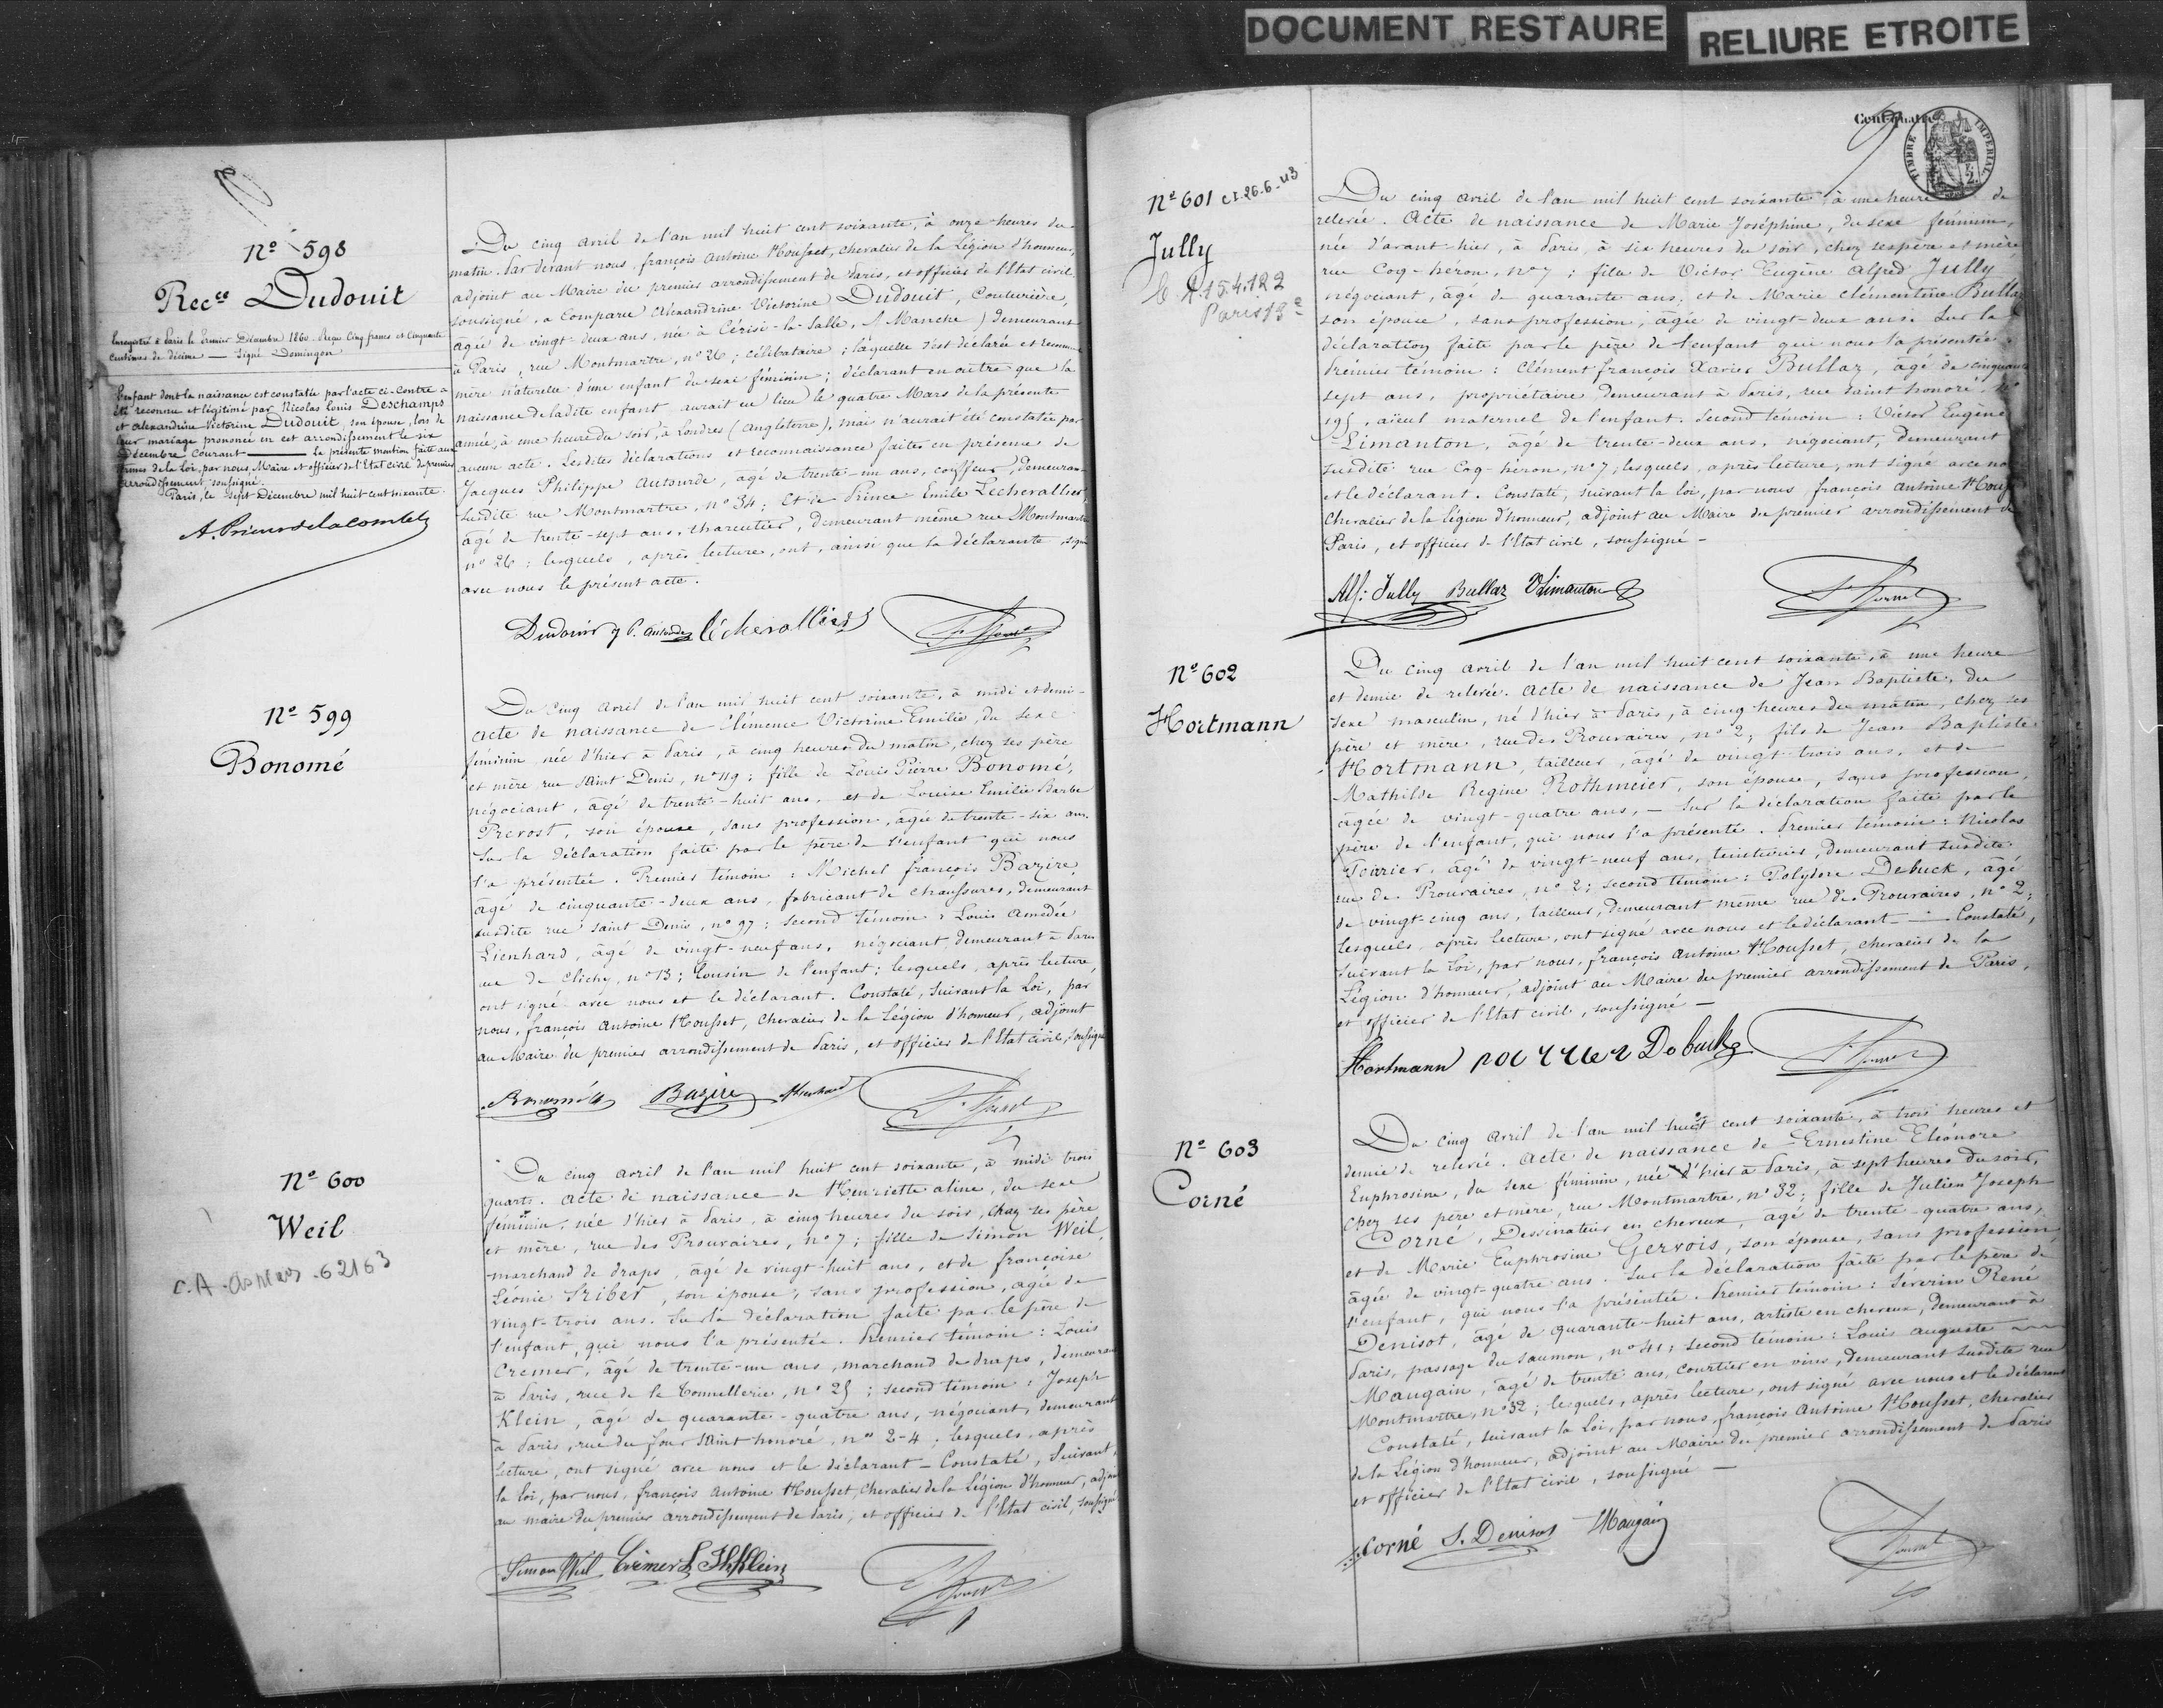 DOCUMENT RESTAURE
RELIURE ETROITE
Nº 598
Recce Dudouit
Enregistré à Paris le premier Décembre 1860. Reçu Cinq francs et Cinquante
centimes de décime — Signé Domingon
L'enfant dont la naissance est constatée par l'acte ci-contre a
été reconnue et légitimé par Nicolas Louis Deschamps
et Alexandrine Victorine Dudouit, son épouse, lors de
leur mariage prononcé en cet arrondissement le six
Décembre Courant — la présente mention faite aux
termes de la Loi, par nous, Maire et officier de l'Etat civil du premier
arrondissement, soussigné.
Paris, le Sept Décembre mil huit cent soixante.
A. Prieur de la Comble
Du cinq avril de l'an mil huit cent soixante, à onze heures du
matin. Par devant nous, françois Antoine Housset, chevalier de la Légion d'honneur,
adjoint au Maire du premier arrondissement de Paris, et officier de l'Etat civil
soussigné, a Comparu Alexandrine Victorine Dudouit, Couturière,
âgée de vingt-deux ans, née à Cérisi-la-Salle, (Manche) demeurant
à Paris, rue Montmartre, nº 26; célibataire; laquelle s'est déclarée et reconnue
mère naturelle d'une enfant du sexe féminin; déclarant en outre que la
naissance de ladite enfant aurait eu lieu le quatre Mars de la présente
année, à une heure du soir, à Londres (Angleterre), mais n'aurait été constatée par
aucun acte. Lesdites déclarations et reconnaissance faites en présence de
Jacques Philippe Autourde, âgé de trente-un ans, coiffeur, demeurant
susdite rue Montmartre, nº 34; Et de Prince Emile Lechevallier,
âgé de trente-sept ans, charcutier, demeurant même rue Montmartre
nº 26; lesquels, après lecture, ont, ainsi que la déclarante, signé
avec nous le présent acte.
Dudouit J P. Lechevallier
Nº 599
Bonomé
Du Cinq Avril de l'an mil huit cent soixante, à midi et demi.
acte de naissance de Clémence Victorine Emilie, du sexe
féminin, née d'hier à Paris, à cinq heures du matin, chez ses père
et mère rue Saint Denis, nº 119; fille de Louis Pierre Bonomé,
négociant, âgé de trente-huit ans, et de Louise Emilie Barbe
Prevost, son épouse, sans profession, âgée de trente-six ans.
Sur la déclaration faite par le père de l'enfant qui nous
l'a présentée. Premier témoin: Michel françois Bazire,
âgé de cinquante-deux ans, fabricant de chaussures, demeurant
susdite rue saint Denis, nº 97; second témoin: Louis Amédée
Lienhard, âgé de vingt-neuf ans, négociant, demeurant à Paris
rue de Clichy, nº 13; Cousin de l'enfant; lesquels, après lecture,
ont signé avec nous et le déclarant. Constaté, suivant la Loi, par
nous, françois Antoine Housset, Chevalier de la Légion d'honneur, adjoint
au Maire du premier arrondissement de Paris, et officier de l'Etat civil, soussigné
Bonomé Bazire Lienhard
Nº 600
Weil
C.A. 62163
Du cinq avril de l'an mil huit cent soixante, à midi trois
quarts. acte de naissance de Henriette aline, du sexe
féminin, née d'hier à Paris, à cinq heures du soir, chez ses père
et mère, rue des Prouvaires, nº 7; fille de Simon Weil,
marchand de draps, âgé de vingt-huit ans, et de françoise
Léonie Sriber, son épouse, sans profession, âgée de
vingt-trois ans. Sur la déclaration faite par le père de
l'enfant, qui nous l'a présentée. Premier témoin: Louis
Cremer, âgé de trente-un ans, marchand de draps, demeurant
à Paris, rue de la Tonnellerie, nº 25; second témoin: Joseph
Klein, âgé de quarante-quatre ans, négociant, demeurant
à Paris, rue du four Saint honoré, nos 2-4; lesquels, après
lecture, ont signé avec nous et le déclarant — Constaté, Suivant
la loi, par nous, françois Antoine Housset, Chevalier de la Légion d'honneur, adjoint
au maire du premier arrondissement de Paris, et officier de l'Etat civil, soussigné
Simon Weil Cremer L Jh Klein
Cent quatre
TIMBRE IMPERIAL
Nº 601 CI. 26.6.43
Jully
15.4.122
Paris 18e
Du cinq avril de l'an mil huit cent soixante à une heure de
relevée. Acte de naissance de Marie Joséphine, du sexe féminin,
née d'avant-hier, à Paris, à six heures du soir, chez ses père et mère
rue Coq-héron, nº 7; fille de Victor Eugène Alfred Jully
négociant, âgé de quarante ans, et de Marie Clémentine Bullaz
son épouse, sans profession, âgée de vingt-deux ans. Sur la
déclaration faite par le père de l'enfant qui nous l'a présentée.
Premier témoin: Clément françois Xavier Bullaz, âgé de cinquante
sept ans, propriétaire, demeurant à Paris, rue Saint honoré, nº
195, aïeul maternel de l'enfant. Second témoin: Victor Eugène
Limanton, âgé de trente-deux ans, négociant, demeurant
susdite rue Coq-héron, nº 7; lesquels, après lecture, ont signé avec nous
et le déclarant. Constaté, suivant la loi, par nous, françois Antoine Housset
Chevalier de la légion d'honneur, adjoint au Maire du premier arrondissement de
Paris, et officier de l'Etat civil, soussigné —
Alf. Jully Bullaz Limanton
Nº 602
Hortmann
Du cinq avril de l'an mil huit cent soixante, à une heure
et demie de relevée. Acte de naissance de Jean Baptiste, du
sexe masculin, né d'hier à Paris, à cinq heures du matin, chez ses
père et mère, rue des Prouvaires, nº 2; fils de Jean Baptiste
Hortmann, tailleur, âgé de vingt-trois ans, et de
Mathilde Regine Rothmeier, son épouse, sans profession,
âgée de vingt-quatre ans, — Sur la déclaration faite par le
père de l'enfant, qui nous l'a présenté. Premier témoin: Nicolas
âgé de vingt-neuf ans, teinturier, demeurant susdite
rue des Prouvaires, nº 2; second témoin: Polydore Debuck, âgé
de vingt-cinq ans, tailleur, demeurant même rue des Prouvaires, nº 2;
lesquels, après lecture, ont signé avec nous et le déclarant — Constaté,
Suivant la Loi, par nous, françois Antoine Housset, chevalier de la
Légion d'honneur, adjoint au Maire du premier arrondissement de Paris,
et officier de l'Etat civil, soussigné —
Hortmann Debuck
Nº 603
Corné
Du cinq avril de l'an mil huit cent soixante, à trois heures et
demie de relevée. Acte de naissance de Ernestine Eléonore
Euphrosine, du sexe féminin, née d'hier à Paris, à sept heures du soir,
chez ses père et mère, rue Montmartre, nº 32; fille de Julien Joseph
Corné, Dessinateur en cheveux, âgé de trente-quatre ans,
et de Marie Euphrosine Gervois, son épouse, sans profession,
âgée de vingt-quatre ans. Sur la déclaration faite par le père de
l'enfant, qui nous l'a présentée. Premier témoin: Séverin René
Denisot, âgé de quarante-huit ans, artiste en cheveux, demeurant à
Paris, passage du Saumon, nº 41; second témoin: Louis Auguste
Maugain, âgé de trente ans, courtier en vins, demeurant susdite rue
Montmartre, nº 32; lesquels, après lecture, ont signé avec nous et le déclarant
Constaté, suivant la Loi, par nous, françois Antoine Housset, chevalier
de la Légion d'honneur, adjoint au Maire du premier arrondissement de Paris
et officier de l'Etat civil, soussigné —
Corné S. Denisot Maugain